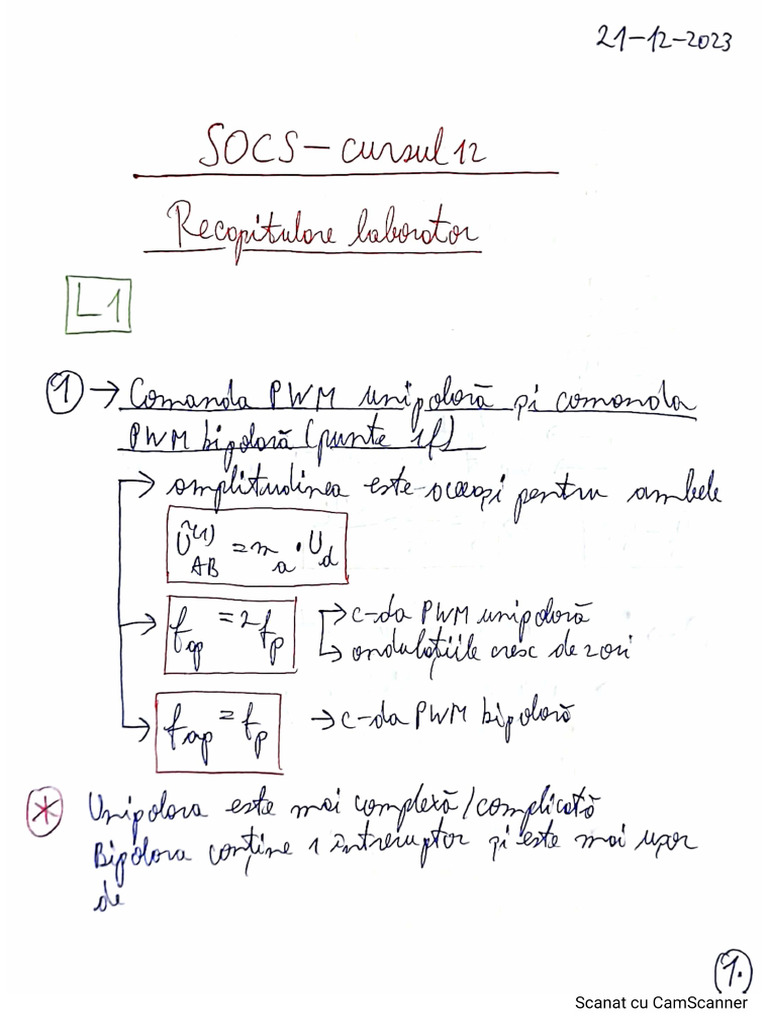 21-12-2023
SOCS - cursul 12
Recapitulare laborator
L1
1 → Comanda PWM unipolară și comanda
PWM bipolară (punte 1f)
→ amplitudinea este aceeași pentru ambele
Û(1)AB = ma · Ud
→ fap = 2fp → c-da PWM unipolară
→ ondulațiile cresc de 2 ori
→ fap = fp → c-da PWM bipolară
* Unipolara este mai complexă/complicată
Bipolara conține 1 întreruptor și este mai ușor
de
1.
Scanat cu CamScanner